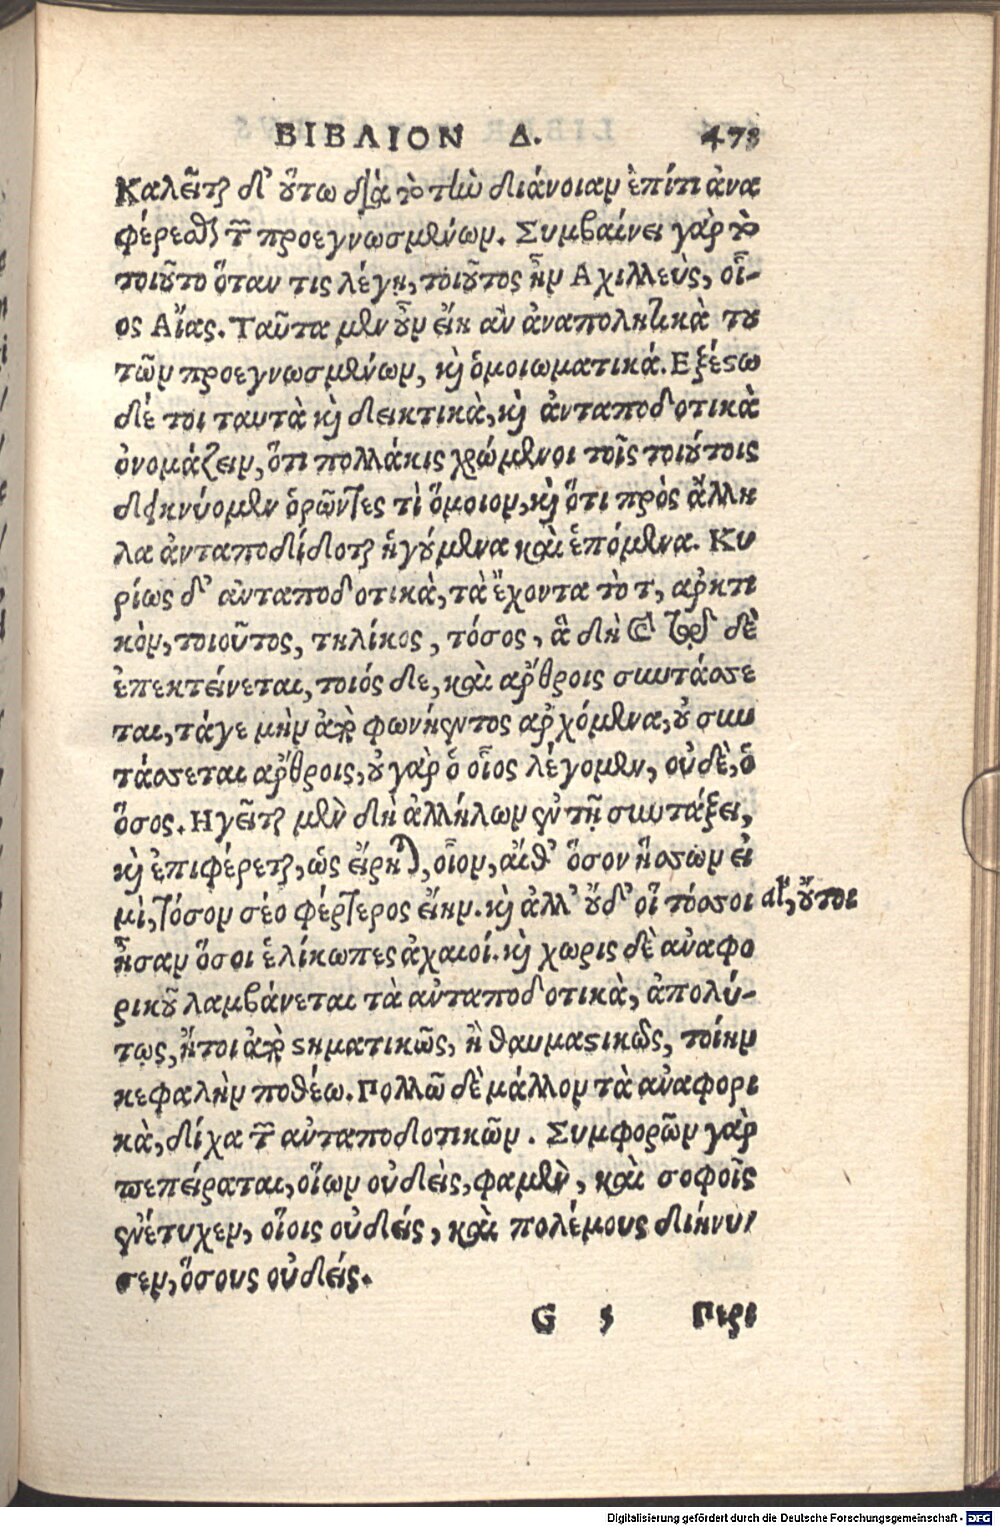 ΒΙΒΛΙΟΝ Δ. 473
Καλεῖται δ' οὕτω διὰ τὸ τὴν διάνοιαν ἐπί τι ἀνα
φέρεσθαι τῶν προεγνωσμένων. Συμβαίνει γὰρ τὸ
τοιοῦτο ὅταν τις λέγῃ, τοιοῦτος ἦν Ἀχιλλεὺς, οἷ-
ος Αἴας. Ταῦτα μὲν οὖν εἴη ἂν ἀναπολητικὰ του
τῶν προεγνωσμένων, καὶ ὁμοιωματικά. Εξέστω
δέ τοι ταυτὰ καὶ δεικτικὰ, καὶ ἀνταποδοτικὰ
ὀνομάζειν, ὅτι πολλάκις χρώμενοι τοῖς τοιούτοις
δεικνύομεν ὁρῶντες τὶ ὅμοιον, καὶ ὅτι πρὸς ἄλλη
λα ἀνταποδίδοται ἡγούμενα καὶ ἑπόμενα. Κυ
ρίως δ' ἀνταποδοτικὰ, τὰ ἔχοντα τὸ τ, αρκτι
κὸν, τοιοῦτος, τηλίκος, τόσος, ἃ δὴ καὶ διὰ τοῦ δὲ
ἐπεκτείνεται, τοιός δε, καὶ αρθροις συντάσσε
ται, τάγε μὴν ἀπὸ φωνήεντος αρχόμενα, οὐ συν
τάσσεται αρθροις, οὐ γὰρ ὁ οἷος λέγομεν, οὐδὲ, ὁ
ὅσος. Ηγεῖται μὲν δὴ ἀλλήλων ἐν τῇ συντάξει,
καὶ ἐπιφέρεται, ὡς εἴρηται, οἷον, αἴθ' ὅσον ἥσσων εἰ
μὶ, τόσον σέο φέρτερος εἴην. καὶ ἀλλ' οὔδ' οἳ τόσσοι αἳ, οὔτοι
ἦσαν ὅσοι ἑλίκωπες ἀχαιοί. καὶ χωρις δὲ αναφο
ρικοῦ λαμβάνεται τὰ αὐταποδοτικὰ, ἀπολύ-
τως, ἤτοι παραστηματικῶς, ἢ θαυμαστικῶς, τοίην
κεφαλὴν ποθέω. Πολλῶ δὲ μάλλον τὰ αναφορι
κὰ, δίχα τῶν αὐταποδοτικῶν. Συμφορῶν γὰρ
πεπείραται, οἵων οὐδεὶς, φαμὲν, καὶ σοφοῖς
ἐνέτυχεν, οἵοις οὐδείς, καὶ πολέμους διήνυ-
σεν, ὅσους οὐδείς.
G 5 Περι
Digitalisierung gefördert durch die Deutsche Forschungsgemeinschaft - DFG